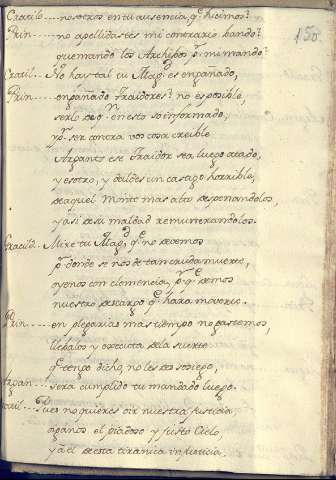 150
Cratilo.... nosotros en tu ausencia, q̃ hicimos?
Prin.... no apellidastes mi contrario bando?
quemando los Archibos pr. mi mando?
Cratil... No hay tal tu Magd. es engañado,
Prin.... engañado Traidores? no es posible,
serlo en esto so informado,
yo ser contra vos cosa creible
Arpanto ese Traidor sea luego atado,
y esotro, y daldes un castigo horrible,
de aquel monte mas alto despenandolos,
y asi de su maldad remunerandolos.
Cratild.. Mire tu Magd. q̃ no devemos
pr. donde se nos de tan cruda muerte,
oyenos con clemencia, pr. q̃ demos
nuestro descargo q̃ hara moverte.
Prin.... en plegarias mas tiempo no gastemos,
llebalos y executa de la suerte
q̃ tengo dicho, no les des sosiego,
Arpan.... sera cumplido tu mandado luego.
Cratil... Pues no quieres oir nuestra justicia,
oyanos el piadoso y justo Cielo,
y a el de esta tiranica injusticia